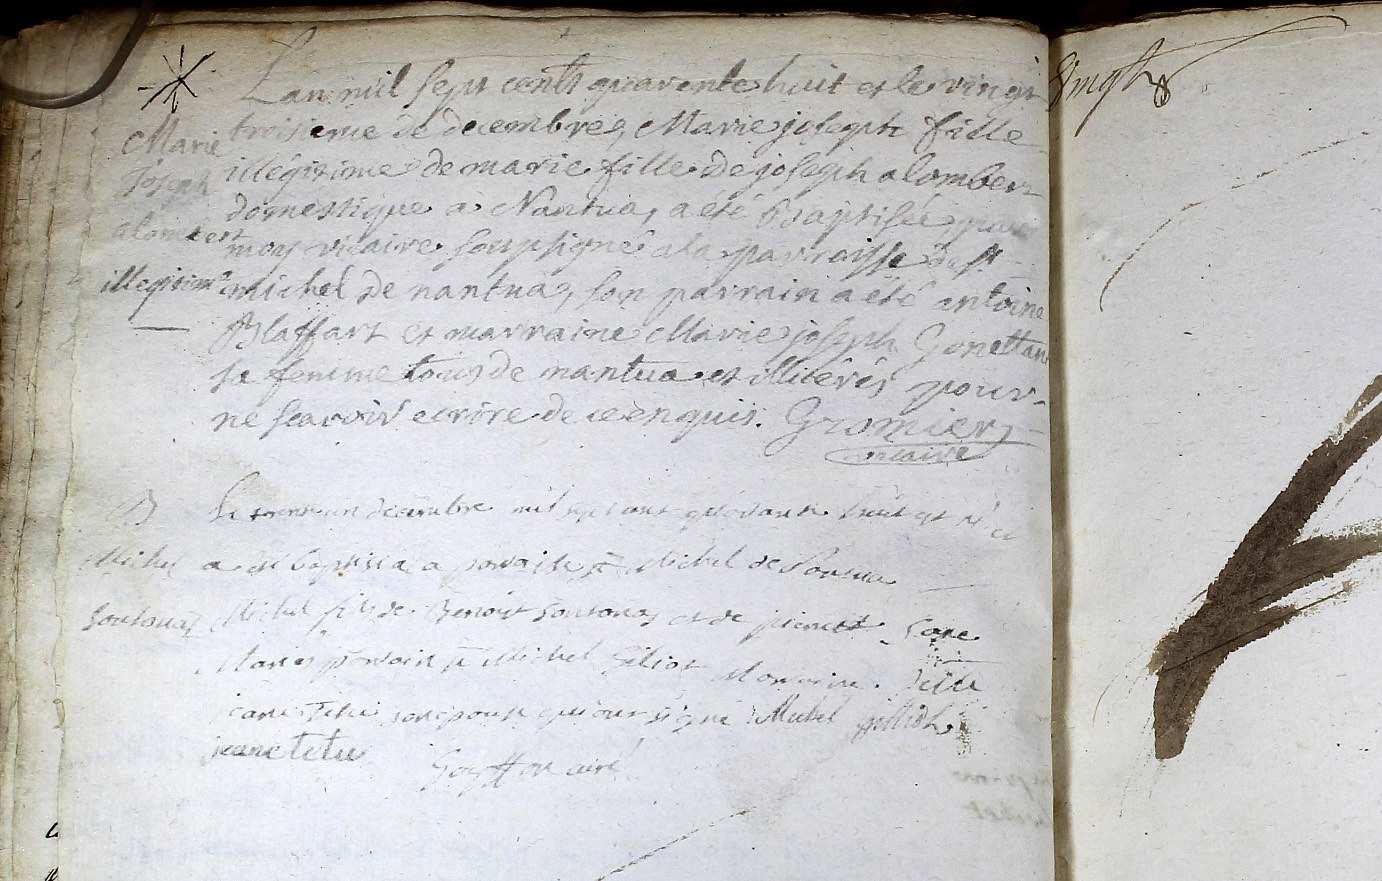 Lan mil sept cents quarente huit et le vingt
troisieme de decembre, Marie joseph fille
illégitime de marie fille de joseph alombert
domestique a Nantua, a été baptisée par
moy vicaire soussigné a la parroisse de st
michel de nantua, son parrain a été antoine
Blaffart et marraine Marie joseph
sa femme tous de nantua et illiterés pour
ne scavoir ecrire de ce enquis. Gromier
vicaire
Marie
Joseph
alombert
illegitime
Le trente un decembre mil sept cent quarante huit est né
a été baptisé a paroisse st Michel de Nantua
Michel fils de Benoit et de pierrette
parain sr Michel Maraine
jeane Tetu son epouse qui ont signé Michel
jeane tetu
Michel